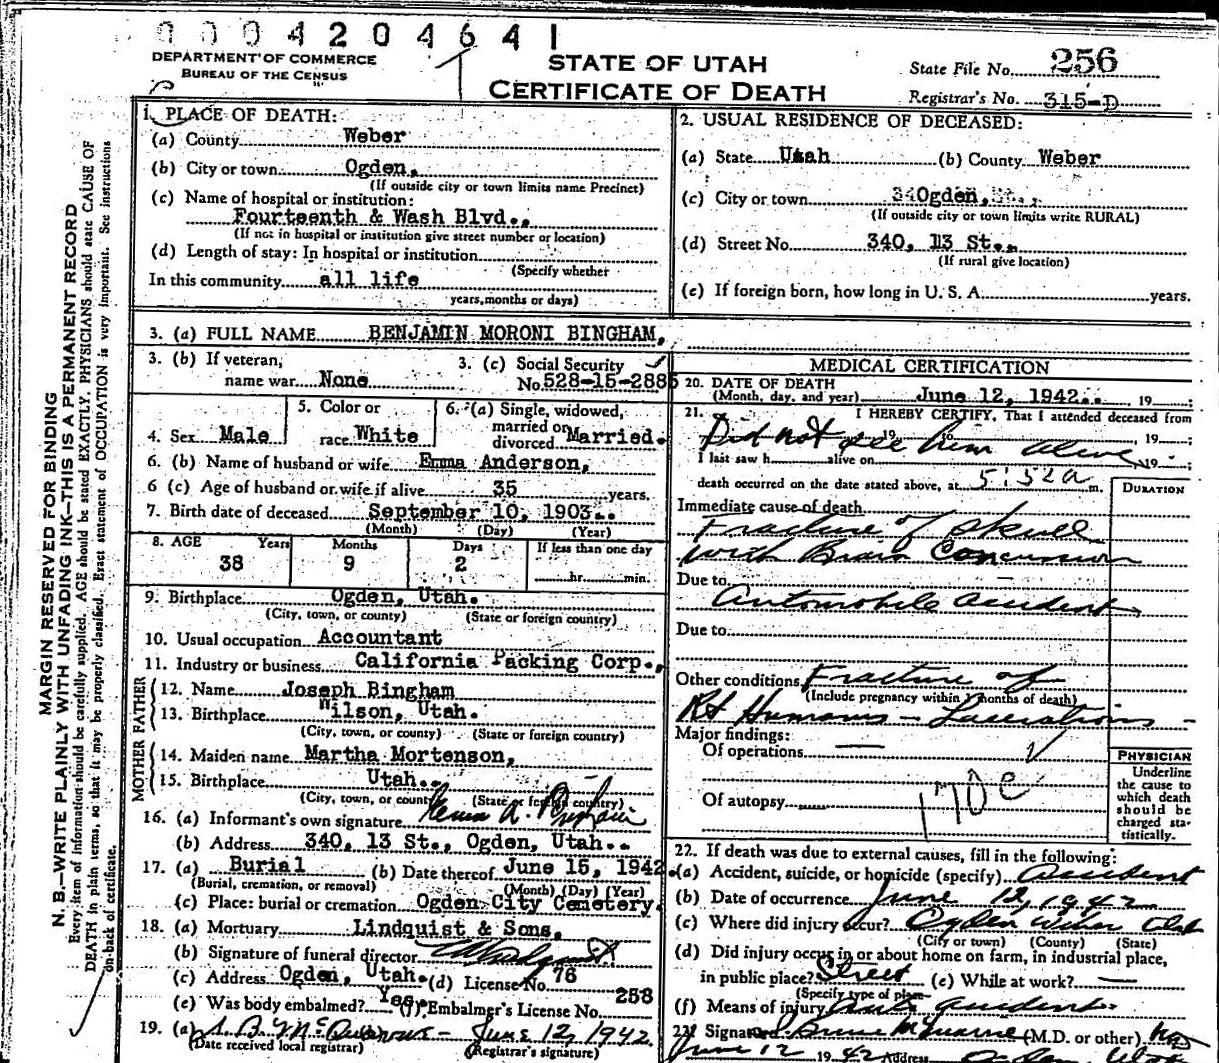 0004204641
DEPARTMENT OF COMMERCE
BUREAU OF THE CENSUS
STATE OF UTAH
CERTIFICATE OF DEATH
State File No. 256
Registrar's No. 315-D
MARGIN RESERVED FOR BINDING
N. B.—WRITE PLAINLY WITH UNFADING INK—THIS IS A PERMANENT RECORD
Every item of information should be carefully supplied. AGE should be stated EXACTLY. PHYSICIANS should state CAUSE OF
DEATH in plain terms, so that it may be properly classified. Exact statement of OCCUPATION is very important. See instructions
on back of certificate.
1. PLACE OF DEATH:
(a) County Weber
(b) City or town Ogden,
(If outside city or town limits name Precinct)
(c) Name of hospital or institution:
Fourteenth & Wash Blvd.,
(If not in hospital or institution give street number or location)
(d) Length of stay: In hospital or institution
(Specify whether
In this community all life
years, months or days)
2. USUAL RESIDENCE OF DECEASED:
(a) State Utah (b) County Weber
(c) City or town Ogden,
(If outside city or town limits write RURAL)
(d) Street No. 340, 13 St.,
(If rural give location)
(e) If foreign born, how long in U. S. A. years.
3. (a) FULL NAME BENJAMIN MORONI BINGHAM,
3. (b) If veteran, name war None
3. (c) Social Security No. 528-15-2885
4. Sex Male
5. Color or race White
6. (a) Single, widowed, married or divorced Married.
6. (b) Name of husband or wife Emma Anderson,
6 (c) Age of husband or wife if alive 35 years.
7. Birth date of deceased September 10, 1903..
(Month) (Day) (Year)
8. AGE Years Months Days If less than one day
38 9 2 hr. min.
9. Birthplace Ogden, Utah.
(City, town, or county) (State or foreign country)
10. Usual occupation Accountant
11. Industry or business California Packing Corp.,
FATHER
12. Name Joseph Bingham
13. Birthplace Wilson, Utah.
(City, town, or county) (State or foreign country)
MOTHER
14. Maiden name Martha Mortenson,
15. Birthplace Utah..
(City, town, or county) (State or foreign country)
16. (a) Informant's own signature
(b) Address 340, 13 St., Ogden, Utah..
17. (a) Burial (b) Date thereof June 15, 1942.
(Burial, cremation, or removal) (Month) (Day) (Year)
(c) Place: burial or cremation Ogden City Cemetery.
18. (a) Mortuary Lindquist & Sons,
(b) Signature of funeral director
(c) Address Ogden, Utah. (d) License No. 76
(e) Was body embalmed? Yes. (f) Embalmer's License No. 258
19. (a) June 12, 1942
(Date received local registrar) (Registrar's signature)
MEDICAL CERTIFICATION
20. DATE OF DEATH
(Month, day, and year) June 12, 1942.. , 19 ;
21. I HEREBY CERTIFY, That I attended deceased from
Did not see him alive , 19 ;
I last saw h alive on , 19 ;
death occurred on the date stated above, at 5:52 a m.
DURATION
Immediate cause of death
Fracture of Skull
with Brain Concussion
Due to
Automobile accident
Due to
Other conditions Fracture of
(Include pregnancy within 3 months of death)
Rt Humerus - Lacerations -
Major findings:
Of operations —
Of autopsy
170c
PHYSICIAN
Underline
the cause to
which death
should be
charged sta-
tistically.
22. If death was due to external causes, fill in the following:
(a) Accident, suicide, or homicide (specify) Accident
(b) Date of occurrence June 12, 1942
(c) Where did injury occur? Ogden Weber Utah
(City or town) (County) (State)
(d) Did injury occur in or about home on farm, in industrial place,
in public place? Street (e) While at work? —
(Specify type of place)
(f) Means of injury Auto accident.
23. Signature (M.D. or other) MD
June 12 1942 Address Ogden, Utah